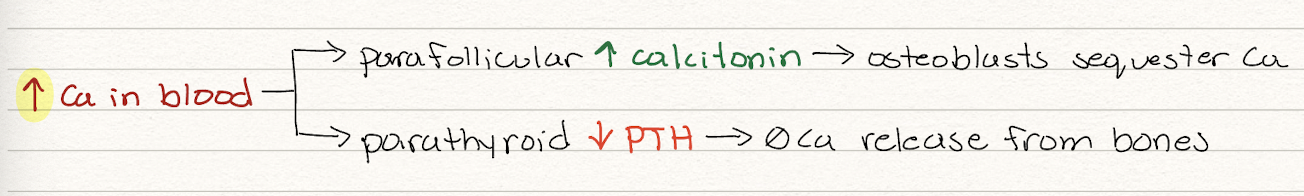 → parafollicular ↑ calcitonin → osteoblasts sequester Ca
↑ Ca in blood
→ parathyroid ↓ PTH → ∅ Ca release from bones